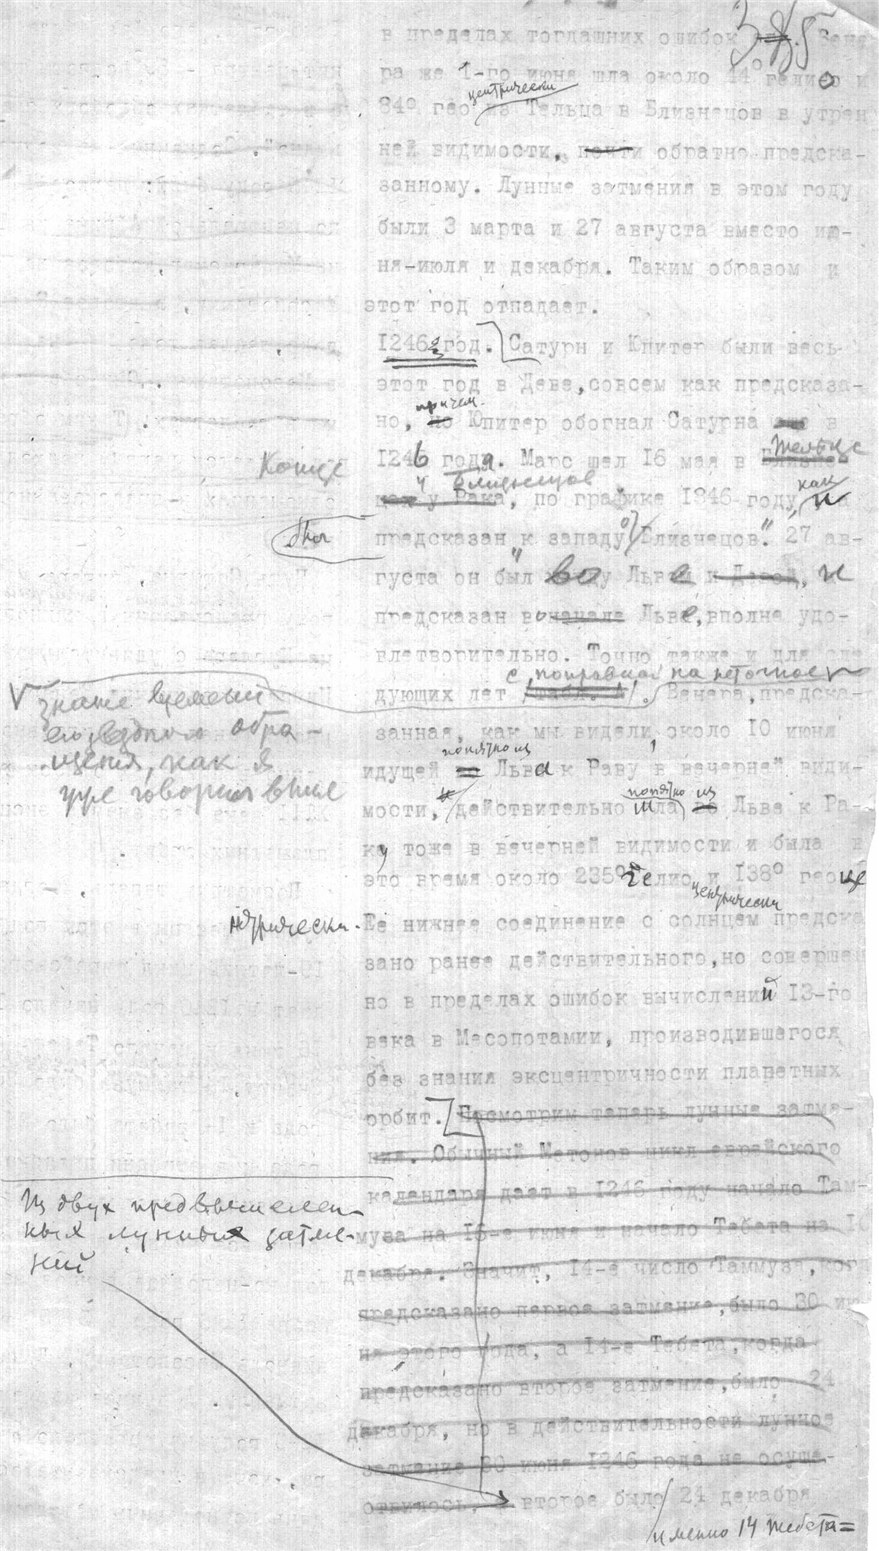 в пределах тогдашних ошибок
ра же 1-го июня шла около 44° гелио и
центрически
84° гео из Тельца в Близнецов в утрен
ней видимости, почти обратно предска-
занному. Лунные затмения в этом году
были 3 марта и 27 августа вместо ию-
ня-июля и декабря. Таким образом и
этот год отпадает.
1246 год. Сатурн и Юпитер были весь
этот год в Деве, совсем как предсказа-
причем
но, но Юпитер обогнал Сатурна в
конце
1246 года. Марс шел 16 мая в Тельце
Близнецов
у Рака, по графике 1846 году, как
был
предсказан к западу от Близнецов". 27 ав-
густа он был во Льве и
предсказан в начале Льве, вполне удо-
влетворительно. Точно также и для сле
с поправкой на неточное
дующих лет Венера, предска-
знание времени
его годового обра-
щения, как я
уже говорил выше
занная, как мы видели около 10 июня
попятно из
идущей во Льва к Раку в вечерней види-
мости, действительно шла во Льва к Ра-
попятно из
ку тоже в вечерней видимости и была в
это время около 235° гелио и 138° геоце
центрически
нтрически.
Ее нижнее соединение с солнцем предска
зано ранее действительного, но совершен
но в пределах ошибок вычислений 13-го
века в Месопотамии, производившегося
без знания эксцентричности планетных
орбит. Посмотрим теперь лунные затме-
ния. Обычный Метонов цикл еврейского
календаря дает в 1246 году начало Там-
муза на 16-е июня и начало Тебета на 10
декабря. Значит, 14-е число Таммуза, когда
предсказано первое затмение, было 30 ию
ня этого года, а 14-е Тебета, когда
предсказано второе затмение, было 24
декабря, но в действительности лунное
затмение 30 июня 1246 года не осуще-
ствилось, а второе было 24 декабря
Из двух предвычислен-
ных лунных затме-
ний
именно 14 Тебета=